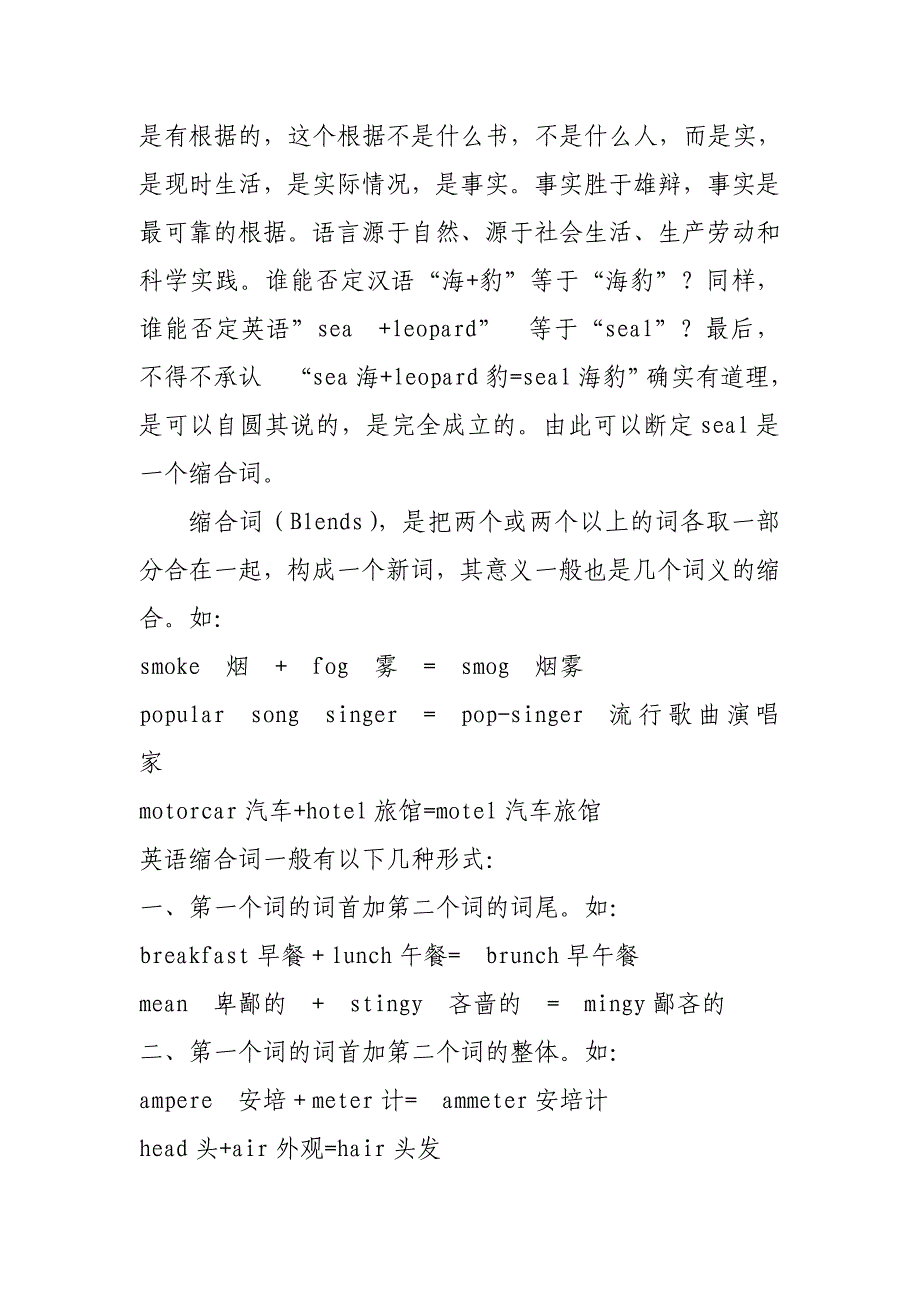 是有根据的，这个根据不是什么书，不是什么人，而是实，
是现时生活，是实际情况，是事实。事实胜于雄辩，事实是
最可靠的根据。语言源于自然、源于社会生活、生产劳动和
科学实践。谁能否定汉语“海+豹”等于“海豹”？同样，
谁能否定英语”sea +leopard” 等于“seal”？最后，
不得不承认 “sea 海+leopard 豹=seal 海豹”确实有道理，
是可以自圆其说的，是完全成立的。由此可以断定 seal 是
一个缩合词。
缩合词（Blends），是把两个或两个以上的词各取一部
分合在一起，构成一个新词，其意义一般也是几个词义的缩
合。如：
smoke 烟 + fog 雾 = smog 烟雾
popular song singer = pop-singer 流行歌曲演唱
家
motorcar 汽车+hotel 旅馆=motel 汽车旅馆
英语缩合词一般有以下几种形式：
一、第一个词的词首加第二个词的词尾。如：
breakfast 早餐＋lunch 午餐= brunch 早午餐
mean 卑鄙的 + stingy 吝啬的 = mingy 鄙吝的
二、第一个词的词首加第二个词的整体。如：
ampere 安培＋meter 计= ammeter 安培计
head 头+air 外观=hair 头发